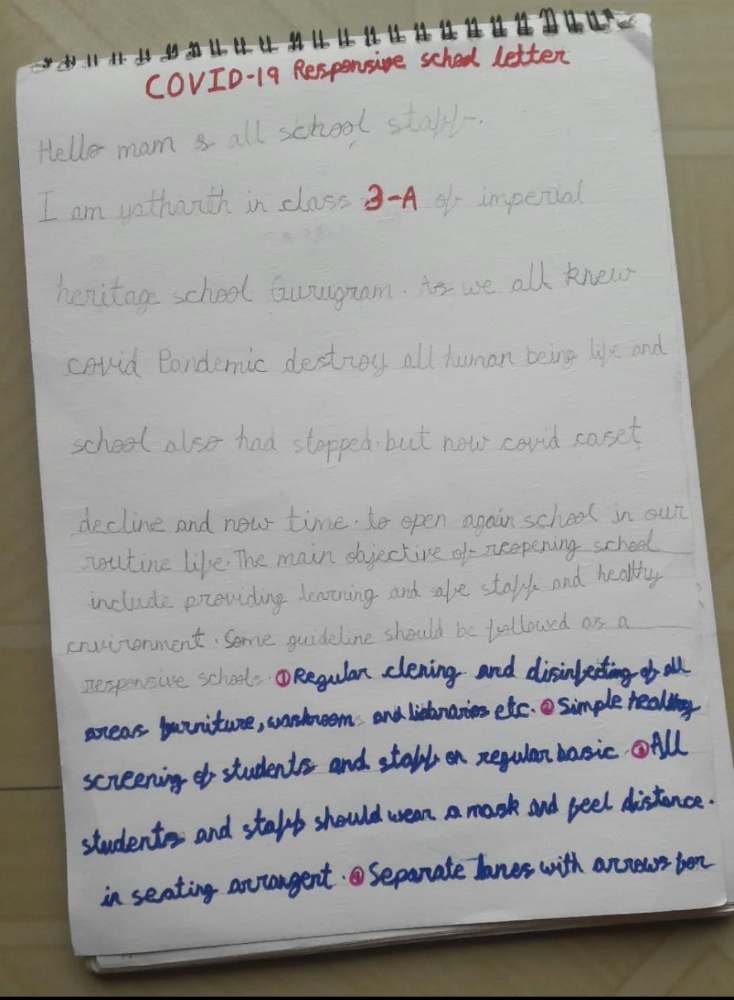 COVID-19 Responsive school letter
Hello mam & all school staff.
I am yatharth in class 3-A of imperial
heritage school Gurugram. As we all knew
covid Pandemic destroy all human being life and
school also had stopped. but now covid caset
decline and now time. to open again school in our
routine life. The main objective of reopening school
include providing learning and safe staff and healthy
environment. Some guideline should be followed as a
responsive schools. ① Regular clening and disinfecting of all
areas furniture, washroom and liabraries etc. ② Simple healthy
screening of students and staff on regular basic ③ All
students and staff should wear a mask and feel distance.
in seating arrangent. ④ Separate lanes with arrows for